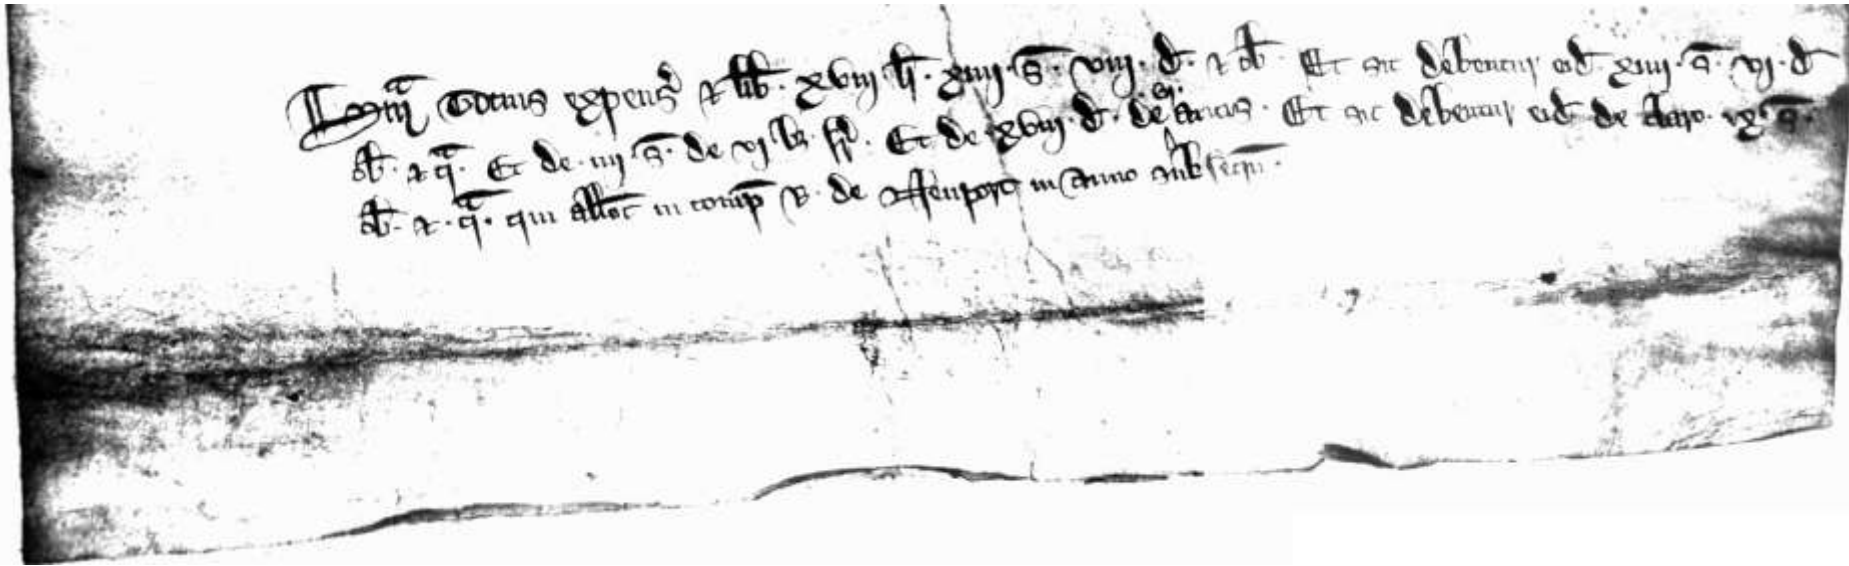 Sm̄a Totius expens̄ ⁊ lib̄. xviij. li. xiiij. s̄. viij. d̄. ⁊ ob̄. Et sic debentur eid̄. xiiij. s̄. vj. d̄
ob̄. ⁊ q̄ᵃ. Et de. iiij. s̄. de vj Et de xviij. d̄. de Et sic debentur eid̄ de claro. ix. s̄.
ob̄. ⁊. q̄ᵃ. qui alloc̄ in comp̄ de Neuport in Anno subseqn̄.